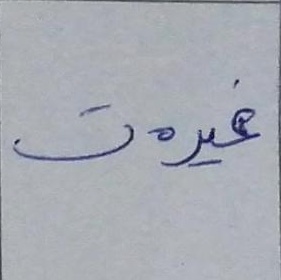 غیرەت